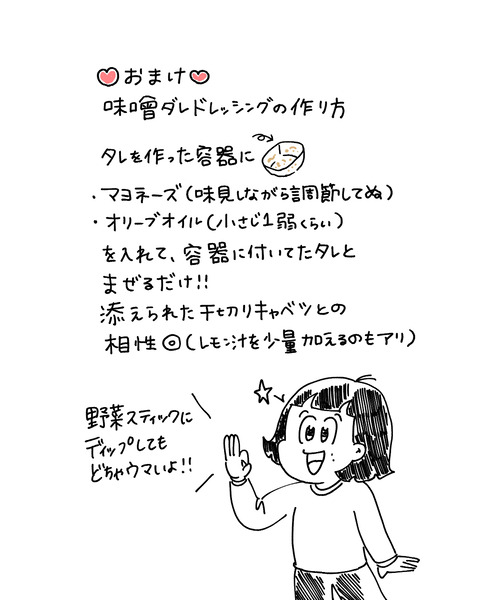 おまけ
味噌ダレドレッシングの作り方
タレを作った容器に
・マヨネーズ(味見しながら調節してぬ)
・オリーブオイル(小さじ1弱くらい)
を入れて、容器に付いてたタレと
まぜるだけ!!
添えられた千切りキャベツとの
相性◎(レモン汁を少量加えるのもアリ)
野菜スティックに
ディップしても
どちゃウマいよ!!